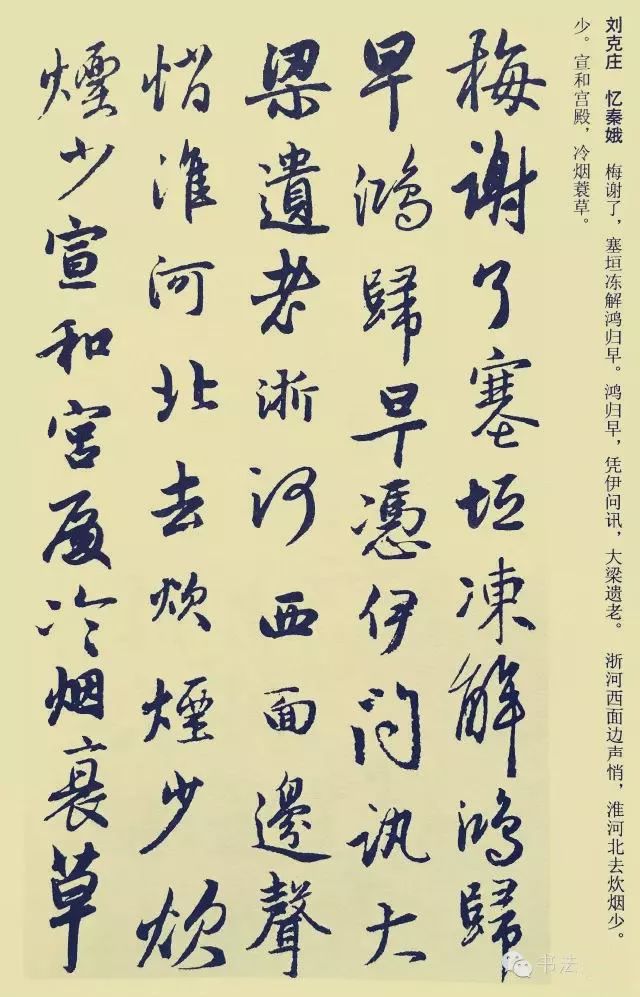 刘克庄　忆秦娥　梅谢了，塞垣冻解鸿归早。鸿归早，凭伊问讯，大梁遗老。　浙河西面边声悄，淮河北去炊烟少。
少。宣和宫殿，冷烟蓑草。
梅謝了塞垣凍解鴻歸
早鴻歸早憑伊問訊大
梁遺老浙河西面邊聲
悄淮河北去炊煙少炊
煙少宣和宮殿冷烟衰草
书法